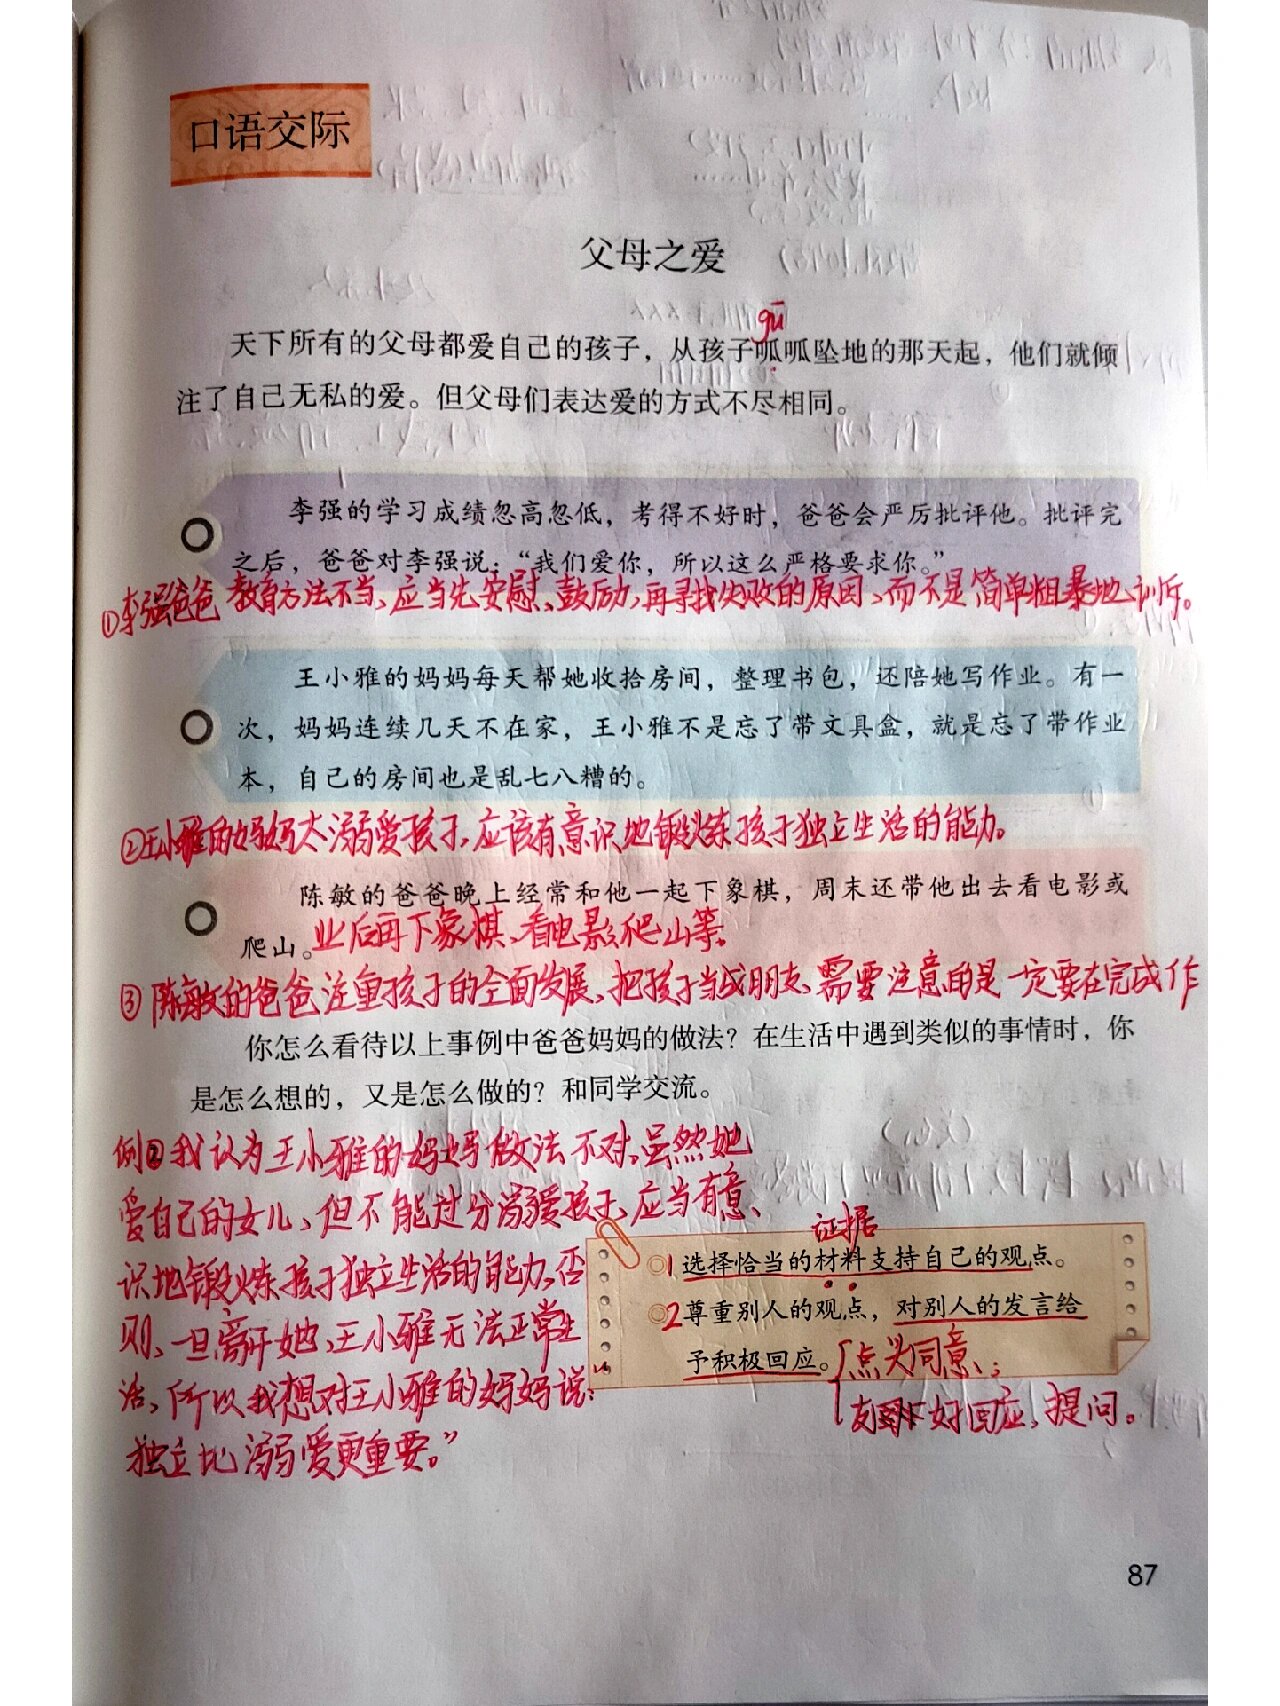 口语交际
父母之爱
gū
天下所有的父母都爱自己的孩子，从孩子呱呱坠地的那天起，他们就倾
注了自己无私的爱。但父母们表达爱的方式不尽相同。
李强的学习成绩忽高忽低，考得不好时，爸爸会严厉批评他。批评完
之后，爸爸对李强说：“我们爱你，所以这么严格要求你。”
①李强爸爸教育方法不当，应当先安慰、鼓励，再寻找失败的原因，而不是简单粗暴地训斥。
王小雅的妈妈每天帮她收拾房间，整理书包，还陪她写作业。有一
次，妈妈连续几天不在家，王小雅不是忘了带文具盒，就是忘了带作业
本，自己的房间也是乱七八糟的。
②王小雅的妈妈太溺爱孩子，应该有意识地锻炼孩子独立生活的能力。
陈敏的爸爸晚上经常和他一起下象棋，周末还带他出去看电影或
爬山。业后再下象棋、看电影、爬山等。
③陈敏的爸爸注重孩子的全面发展、把孩子当成朋友、需要注意的是一定要在完成作
你怎么看待以上事例中爸爸妈妈的做法？在生活中遇到类似的事情时，你
是怎么想的，又是怎么做的？和同学交流。
例②我认为王小雅的妈妈做法不对，虽然她
爱自己的女儿、但不能过分溺爱孩子，应当有意、
识地锻炼孩子独立生活的能力，否
则、一旦离开她，王小雅无法正常生
活，所以我想对王小雅的妈妈说：
独立比溺爱更重要。”
证据
1选择恰当的材料支持自己的观点。
2尊重别人的观点，对别人的发言给
予积极回应。
点头同意、；
友好回应、提问。
87